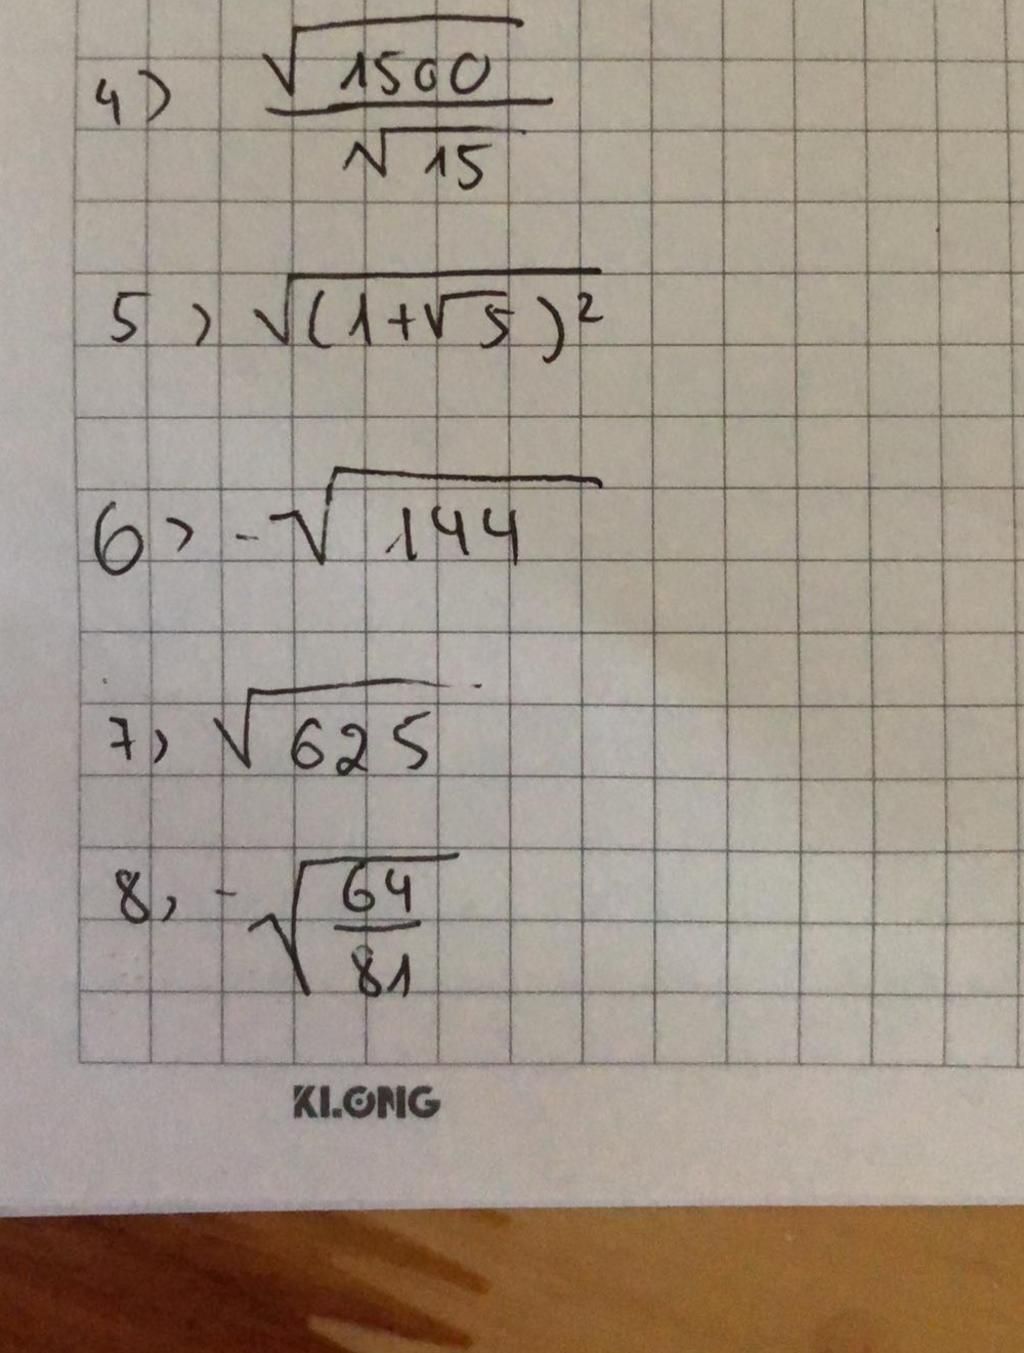 4) √1500
√15
5) √(1+√5)²
6) -√144
7) √625
8, -√64
81
KLONG